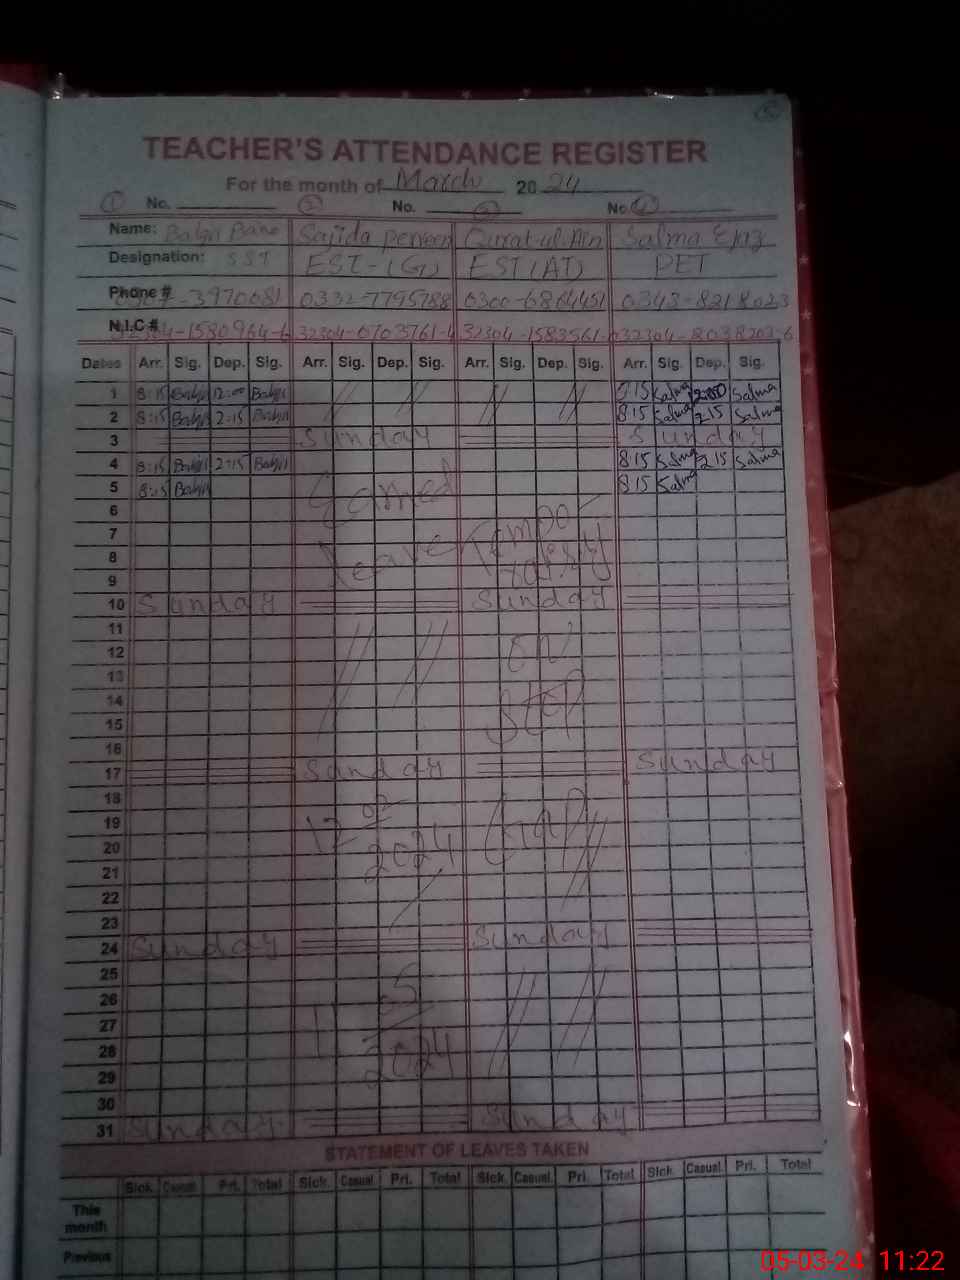 5
TEACHER'S ATTENDANCE REGISTER
For the month of March 20 24
1 No. 2 No. 3 No. 4
Name: Balqi Bano Sajida perveen Qurat-ul-Ain Salma Ejaz
Designation: SST EST-(G) EST(AT) PET
Phone # -3970681 0332-7795788 0300-6864451 0343-8218023
N.I.C # 32304-1580964-6 32304-0703761-4 32304-1583561- 32304-8038203-6
Dates Arr. Sig. Dep. Sig. Arr. Sig. Dep. Sig. Arr. Sig. Dep. Sig. Arr. Sig. Dep. Sig.
1 8:15 Balqi 12:00 Balqi // // // // 8 15 Salma 12:00 Salma
2 8:15 Balqi 2:15 Balqi 8:15 Salma 2 15 Salma
3 Sunday Sunday
4 8:15 Balqi 2:15 Balqi 8:15 Salma 2 15 Salma
5 8:15 Balqi Earned 8:15 Salma
6
7 Leave Tempo-
8 rarily
9
10 Sunday Sunday
11
12 on
13
14
15 STEP
16
17 Sunday Sunday
18
19 12 02
20 2024
21
22
23
24 Sunday Sunday
25
26 5
27 11
28 2024
29
30
31 Sunday Sunday
STATEMENT OF LEAVES TAKEN
Sick Casual Pri. Total Sick. Casual Pri. Total Sick. Casual. Pri. Total Sick. Casual. Pri. Total
This month
Previous
05-03-24 11:22